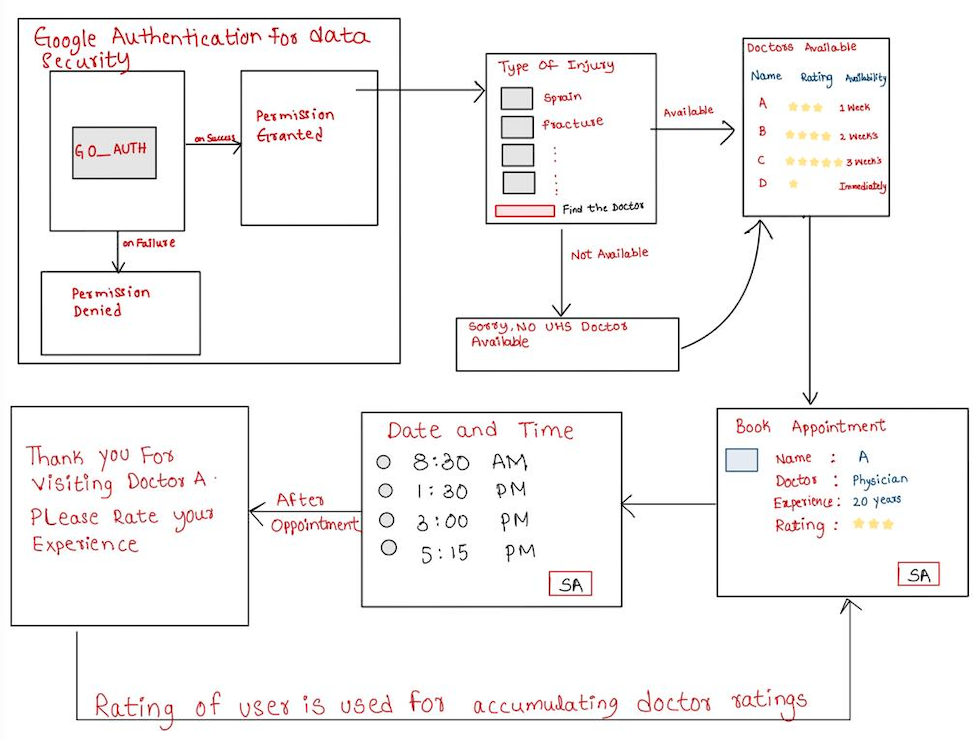 Google Authentication For data
Security
GO_AUTH
on Success
Permission
Granted
on Failure
Permission
Denied
Type Of Injury
Sprain
fracture
Find the Doctor
Available
Not Available
Sorry, NO UHS Doctor
Available
Doctors Available
Name Rating Availability
A 1 Week
B 2 Week's
C 3 Week's
D Immediately
Book Appointment
Name : A
Doctor : Physician
Experience: 20 years
Rating :
SA
Date and Time
8:30 AM
1:30 PM
3:00 PM
5:15 PM
SA
After
Oppointment
Thank you For
Visiting Doctor A.
Please Rate your
Experience
Rating of user is used for accumulating doctor ratings